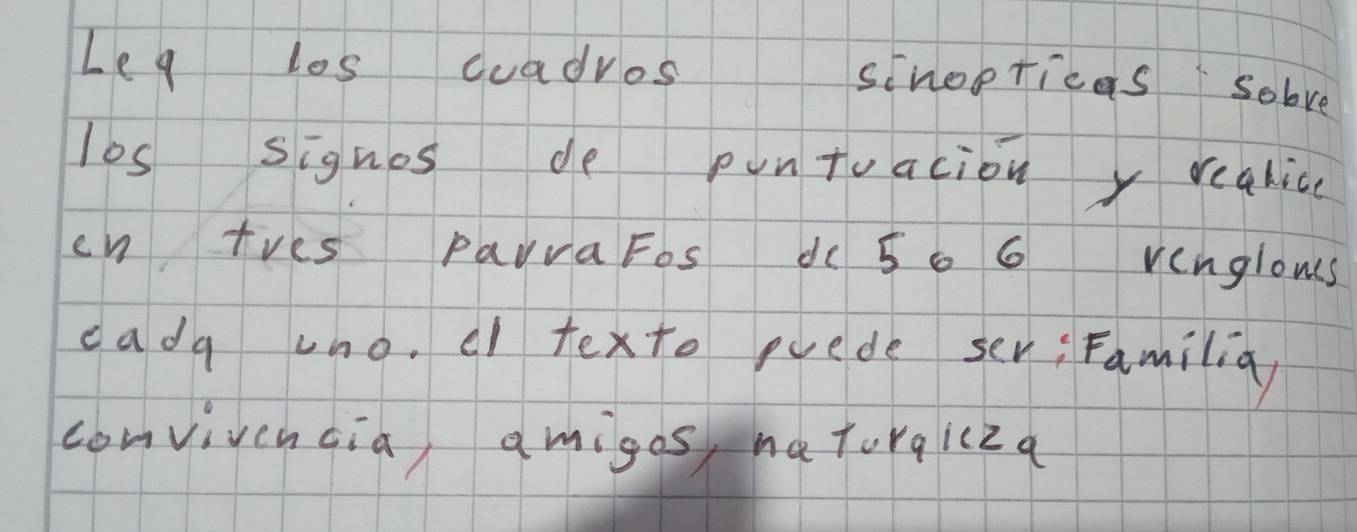 Lea los cuadros sinopticas sobre
los signos de puntuación y realice
en tres parraFos de 5 o 6 renglones
cada uno. el texto puede ser: Familia,
comvivencia, amigos, naturaleza